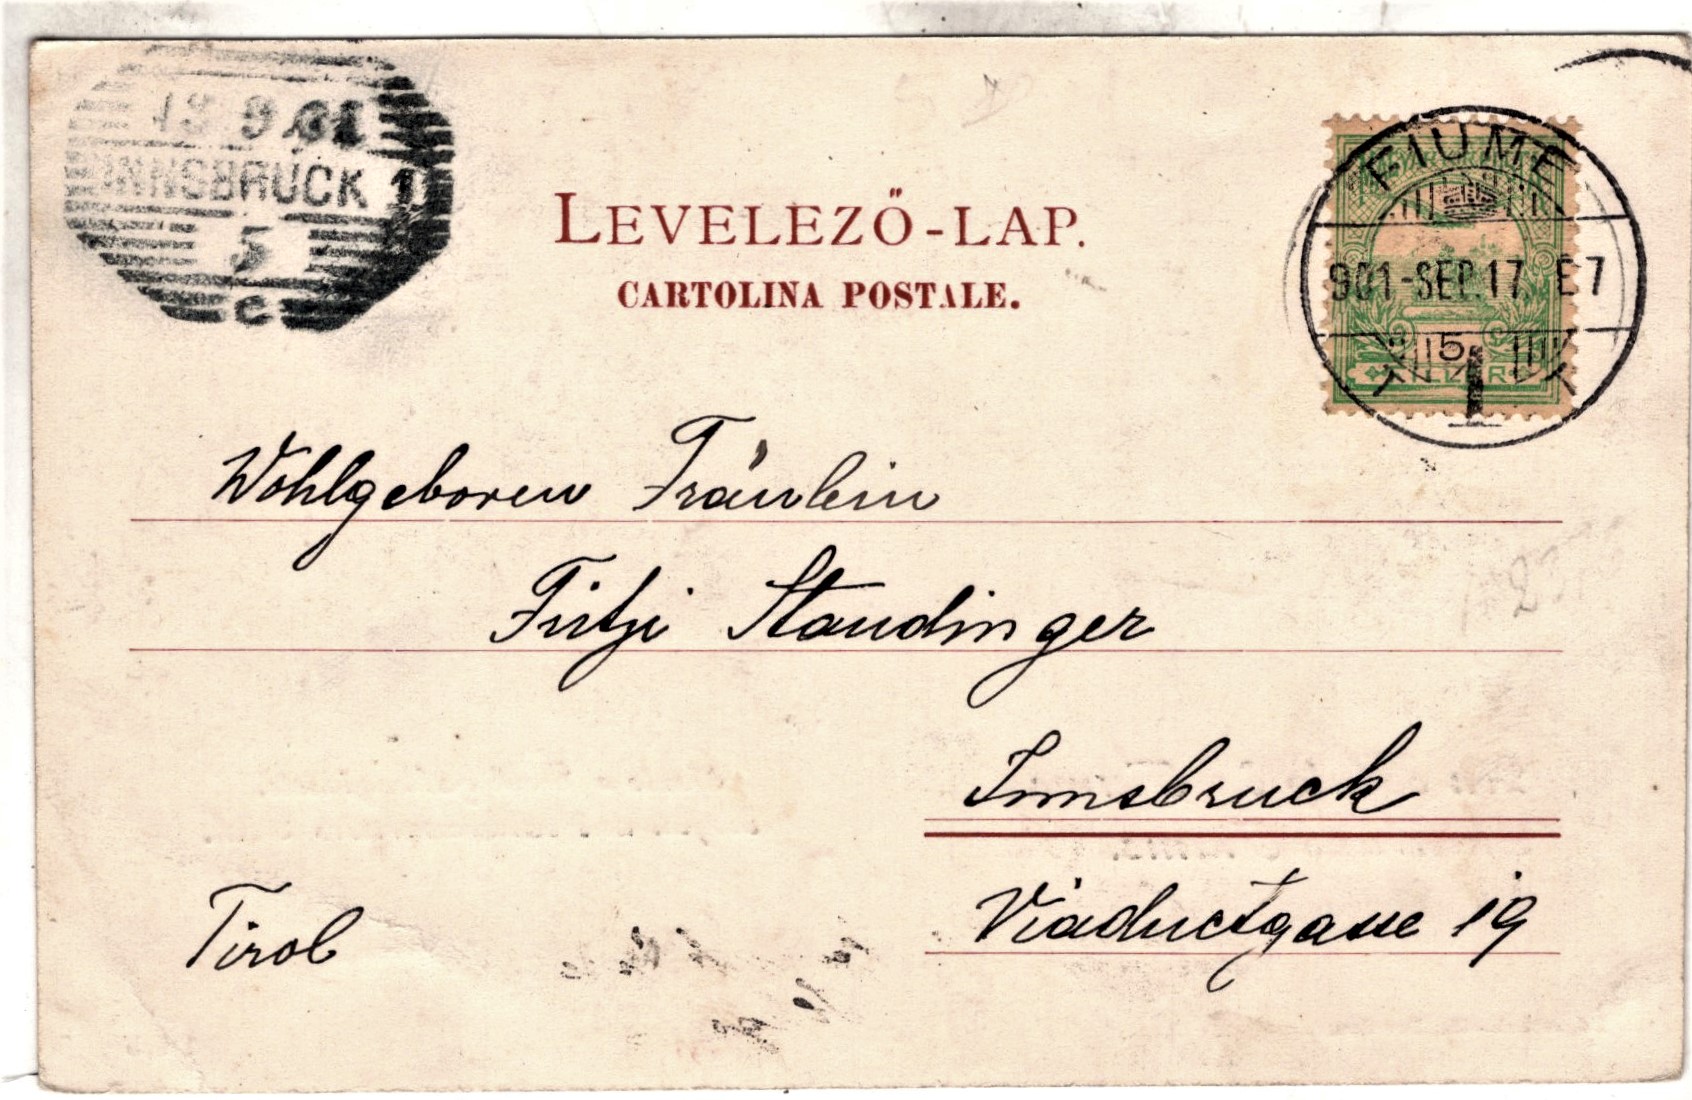 9.01
INNSBRUCK 1
5
c
LEVELEZŐ-LAP.
CARTOLINA POSTALE.
FIUME
901-SEP.17. E7
5
Wohlgeboren Fräulein
Fritzi Staudinger
Innsbruck
Viaductgasse 19
Tirol